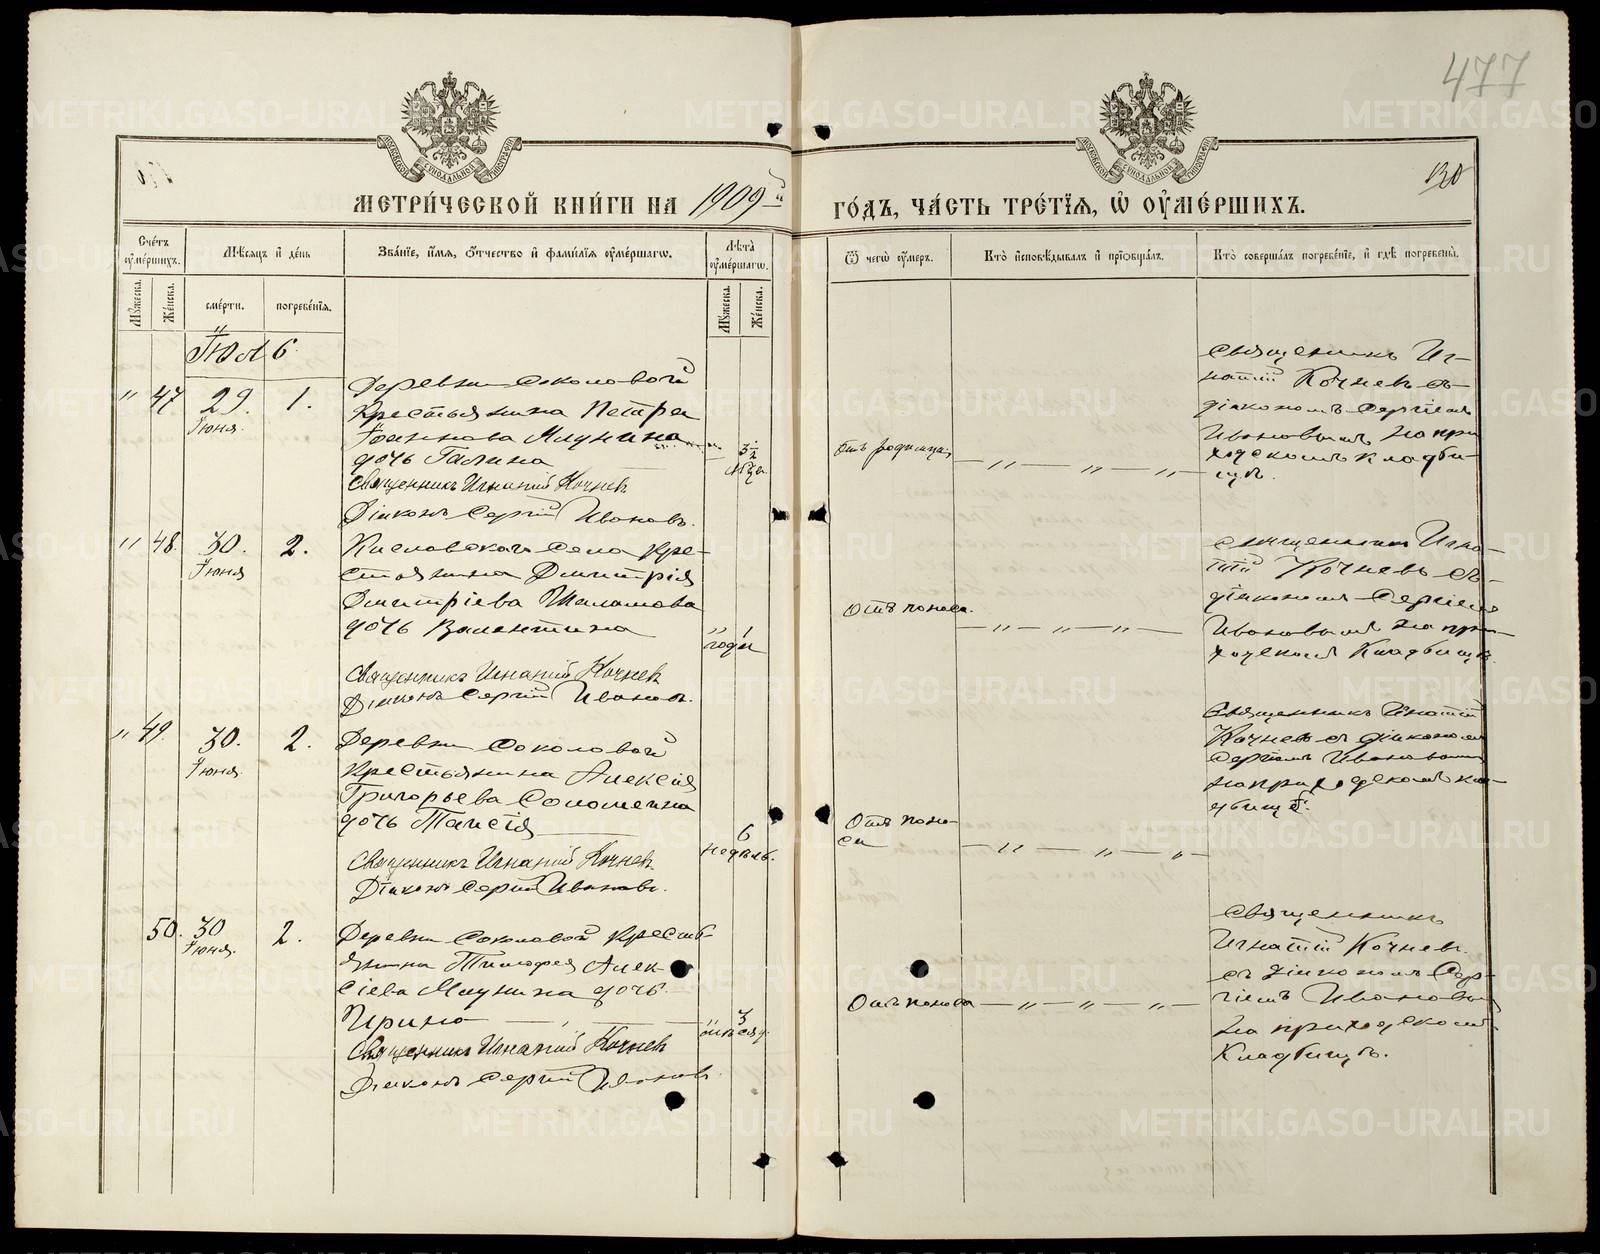 477
120
МЕТРИ́ЧЕСКОЙ КНИ́ГИ НА 1909й ГО́ДЪ, ЧА́СТЬ ТРЕ́ТІЯ, Ѿ ОУМЕ́РШИХЪ.
Сче́тъ оуме́ршихъ.
Мѣ́сяцъ и де́нь
Зва́ніе, и́мя, о́тчество и фами́лія оуме́ршагѡ.
Лѣ́та оуме́ршагѡ.
Ѿ чегѡ̀ оу́меръ.
Кто̀ исповѣ́дывалъ и прїѡбща́лъ.
Кто̀ соверша́лъ погребе́ніе, и гдѣ̀ погребены̀.
Му́жеска.
Же́нска.
сме́рти.
погребе́нія.
Му́жеска.
Же́нска.
Іюль
" 47 29. Іюня. 1.
Деревни Соколовой
Крестьянина Петра
Іоаннова Мяунина
дочь Галина
Священникъ Игнатій Кочневъ
Діаконъ Сергій Ивановъ.
3 1/2 мѣца
Отъ родимца,
— " — " — "
Священникъ Иг-
натій Кочневъ съ
діакономъ Сергіемъ
Ивановымъ на при
ходскомъ кладби-
щѣ.
" 48. 30. Іюня 2.
Кисловскаго села кре-
стьянина Димитрія
Димитріева Шаламова
дочь Валентина
Священникъ Игнатій Кочневъ
Діаконъ Сергій Ивановъ.
" 1 года
Отъ поноса.
— " — " — " —
Священникъ Игна-
тій Кочневъ съ
діакономъ Сергіемъ
Ивановымъ на при-
ходскомъ кладбищѣ.
" 49. 30. Іюня. 2.
Деревни Соколовой
Крестьянина Алексія
Григорьева Соломеина
дочь Таисія
Священникъ Игнатій Кочневъ
Діаконъ Сергій Ивановъ.
6 недѣль.
Отъ поно-
са
— " — " — "
Священникъ Игнатій
Кочневъ съ діакономъ
Сергіемъ Ивановымъ
на приходскомъ кла-
дбищѣ.
50. 30 Іюня. 2.
Деревни Соколовой кресть-
янина Тимофея Алек-
сіева Мяунина дочь
Ирина
Священникъ Игнатій Кочневъ
Діаконъ Сергій Ивановъ.
" 3 мѣсяц.
Отъ поноса
— " — " — " —
Священникъ
Игнатій Кочневъ
съ діакономъ Сер-
гіемъ Ивановымъ
на приходскомъ
кладбищѣ.
METRIKI.GASO-URAL.RU